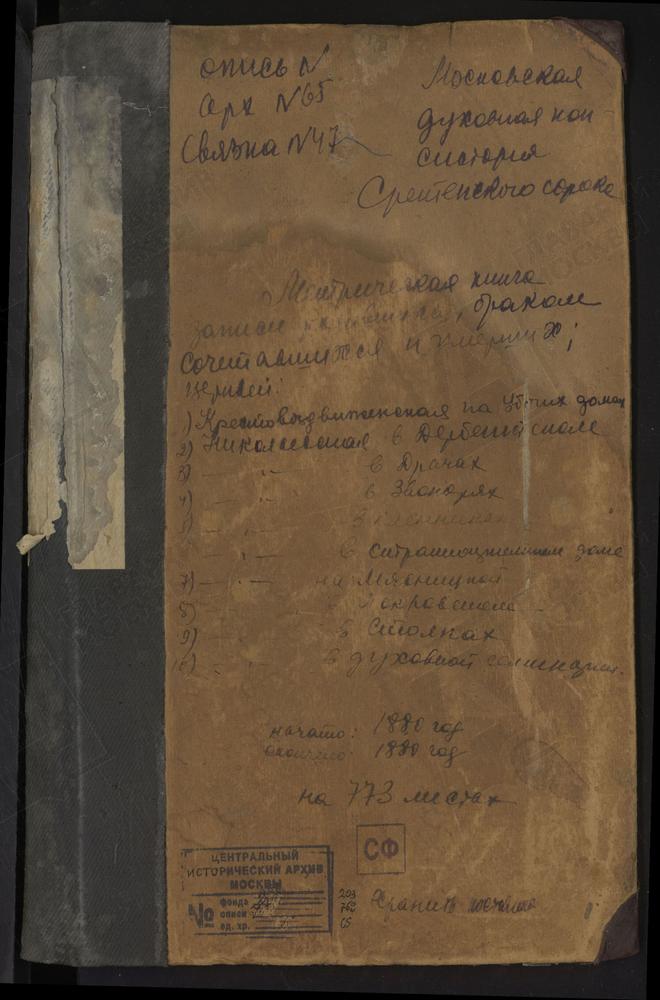 опись N
Арх N65
Связка N47
Московская
духовная кон-
систория
Сретенского сорока
Метрическая книга
записи браком
сочетавшихся и умерших;
церквей:
1) Крестовоздвиженская на Убогих домах
2) Николаевская в Дербенском
3) — " — в Драчах
4) — " — в Звонарях
5)
— " — в Странноприимном доме
7) — " — на Мясницкой
8) — " — в Покровском
9) — " — в Столпах
10) — " — в духовной семинарии.
начато: 1880 год
окончено: 1880 год
на 773 листах
СФ
ЦЕНТРАЛЬНЫЙ
ИСТОРИЧЕСКИЙ АРХИВ
МОСКВЫ
№ фонда 203
описи
ед. хр.
Хранить постоянно